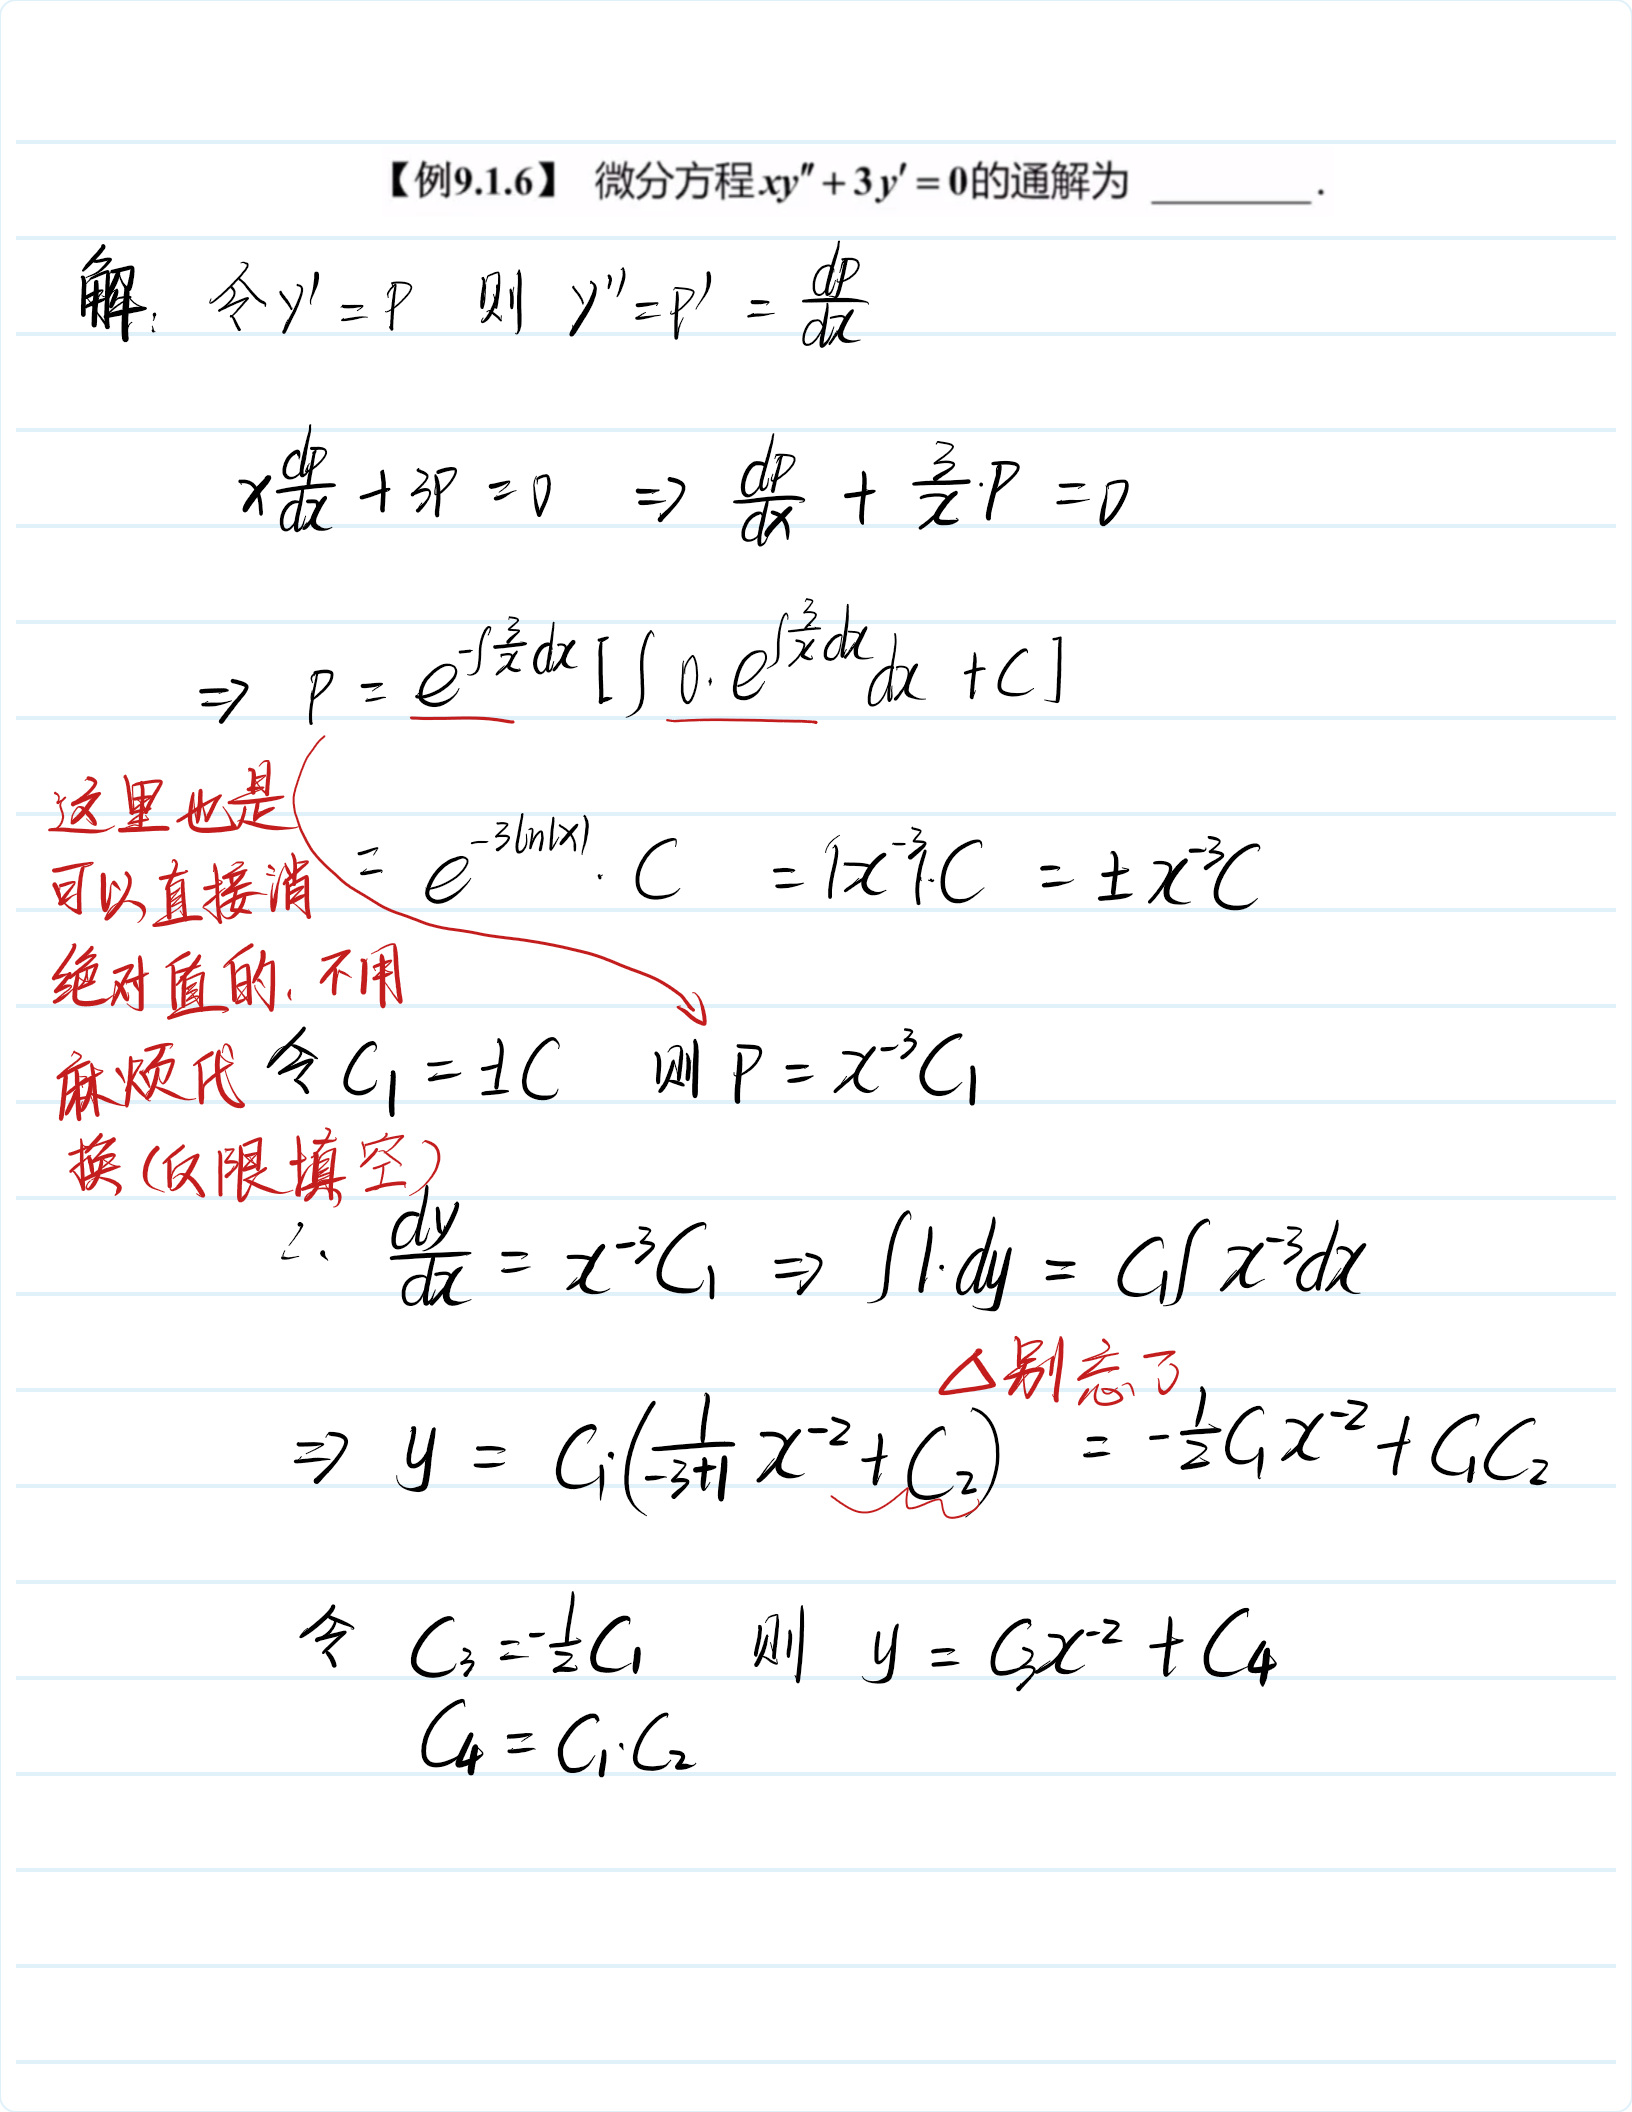 【例9.1.6】 微分方程xy″+3y′=0的通解为 ________.
解: 令y'=P 则 y''=p' = dp/dx
x dp/dx +3P =0 ⇒ dp/dx + 3/x·P =0
⇒ P = e^{-∫3/x dx}[∫0·e^{∫3/x dx}dx +C]
= e^{-3ln|x|}·C =|x^{-3}|·C = ±x^{-3}C
这里也是
可以直接消
绝对值的. 不用
麻烦代
换(仅限填空)
令C₁=±C 则P=x^{-3}C₁
∴ dy/dx = x^{-3}C₁ ⇒ ∫1·dy = C₁∫x^{-3}dx
△别忘了
⇒ y = C₁·(1/(-3+1) x^{-2}+C₂) = -1/2C₁x^{-2}+C₁C₂
令 C₃=-1/2C₁ 则 y = C₃x^{-2}+C₄
C₄=C₁·C₂